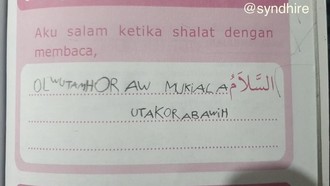 @syndhire
Aku salam ketika shalat dengan
membaca,
OLWUTAMHOR AW MUKIALA السَّلَامُ
UTAKORABAWIH